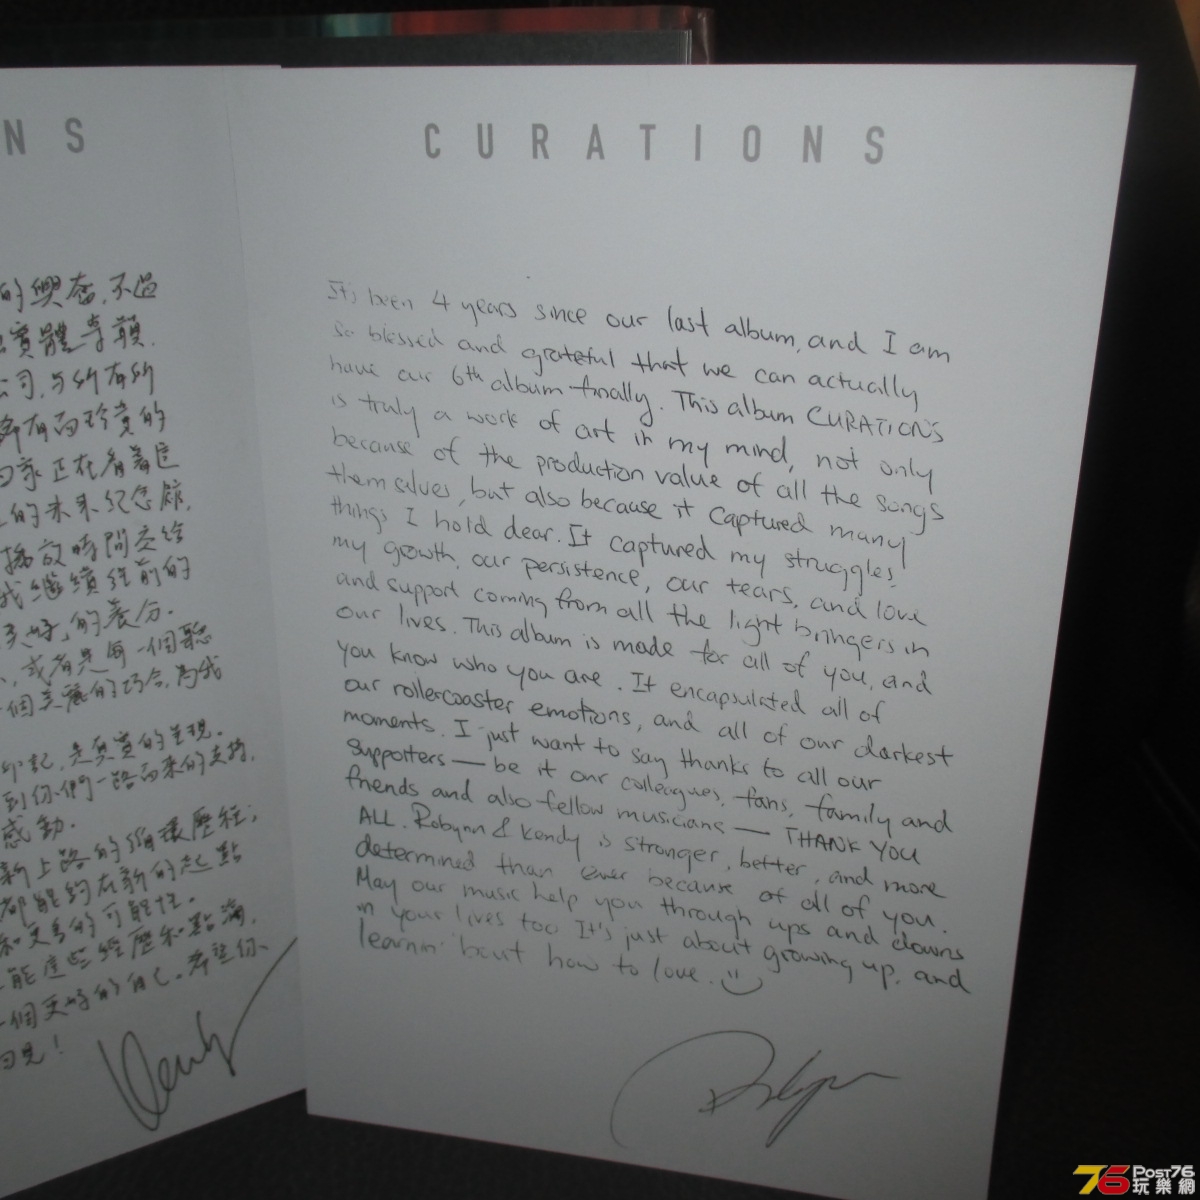 NS
的興奮,不過
實體專輯.
公司,与所有所
稀有而珍貴的
回家正在看著這
的未來紀念館,
播放時間交給
我繼續往前的
美好,的養分.
,或者是每一個聽
個美麗的巧合,為我
印記,是真實的呈現.
到你們一路而來的支持,
感動.
新上路的蹦壞歷程;
都能夠在新的起點
和更多的可能性.
能這些經歷和點滴,
一個更好的自己.希望你
回見!
Kendy
CURATIONS
It's been 4 years since our last album, and I am
so blessed and grateful that we can actually
have our 6th album finally. This album CURATIONS
is truly a work of art in my mind, not only
because of the production value of all the songs
themselves, but also because it captured many
things I hold dear. It captured my struggles,
my growth, our persistence, our tears, and love
and support coming from all the light bringers in
our lives. This album is made for all of you, and
you know who you are. It encapsulated all of
our rollercoaster emotions, and all of our darkest
moments. I just want to say thanks to all our
supporters — be it our colleagues, fans, family and
friends and also fellow musicians — THANK YOU
ALL. Robynn & Kendy is stronger, better, and more
determined than ever because of all of you.
May our music help you through ups and downs
in your lives too. It's just about growing up, and
learnin' 'bout how to love. :)
Robynn
76 Post76
玩樂網